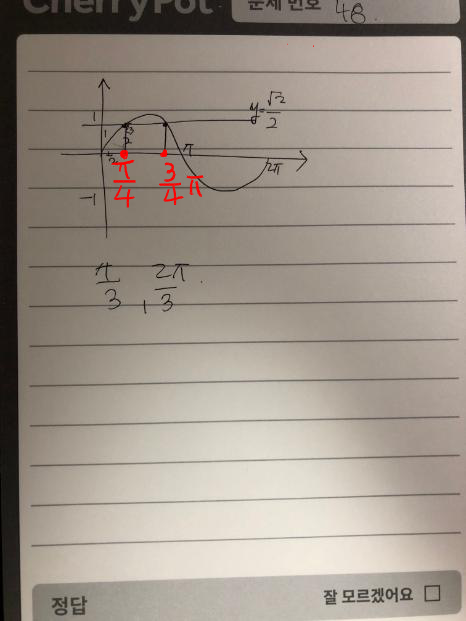 CherryPot 문제 번호 48.
1
y=√2/2
π
2π
π/4 3/4 π
-1
π/3 , 2π/3.
정답 잘 모르겠어요